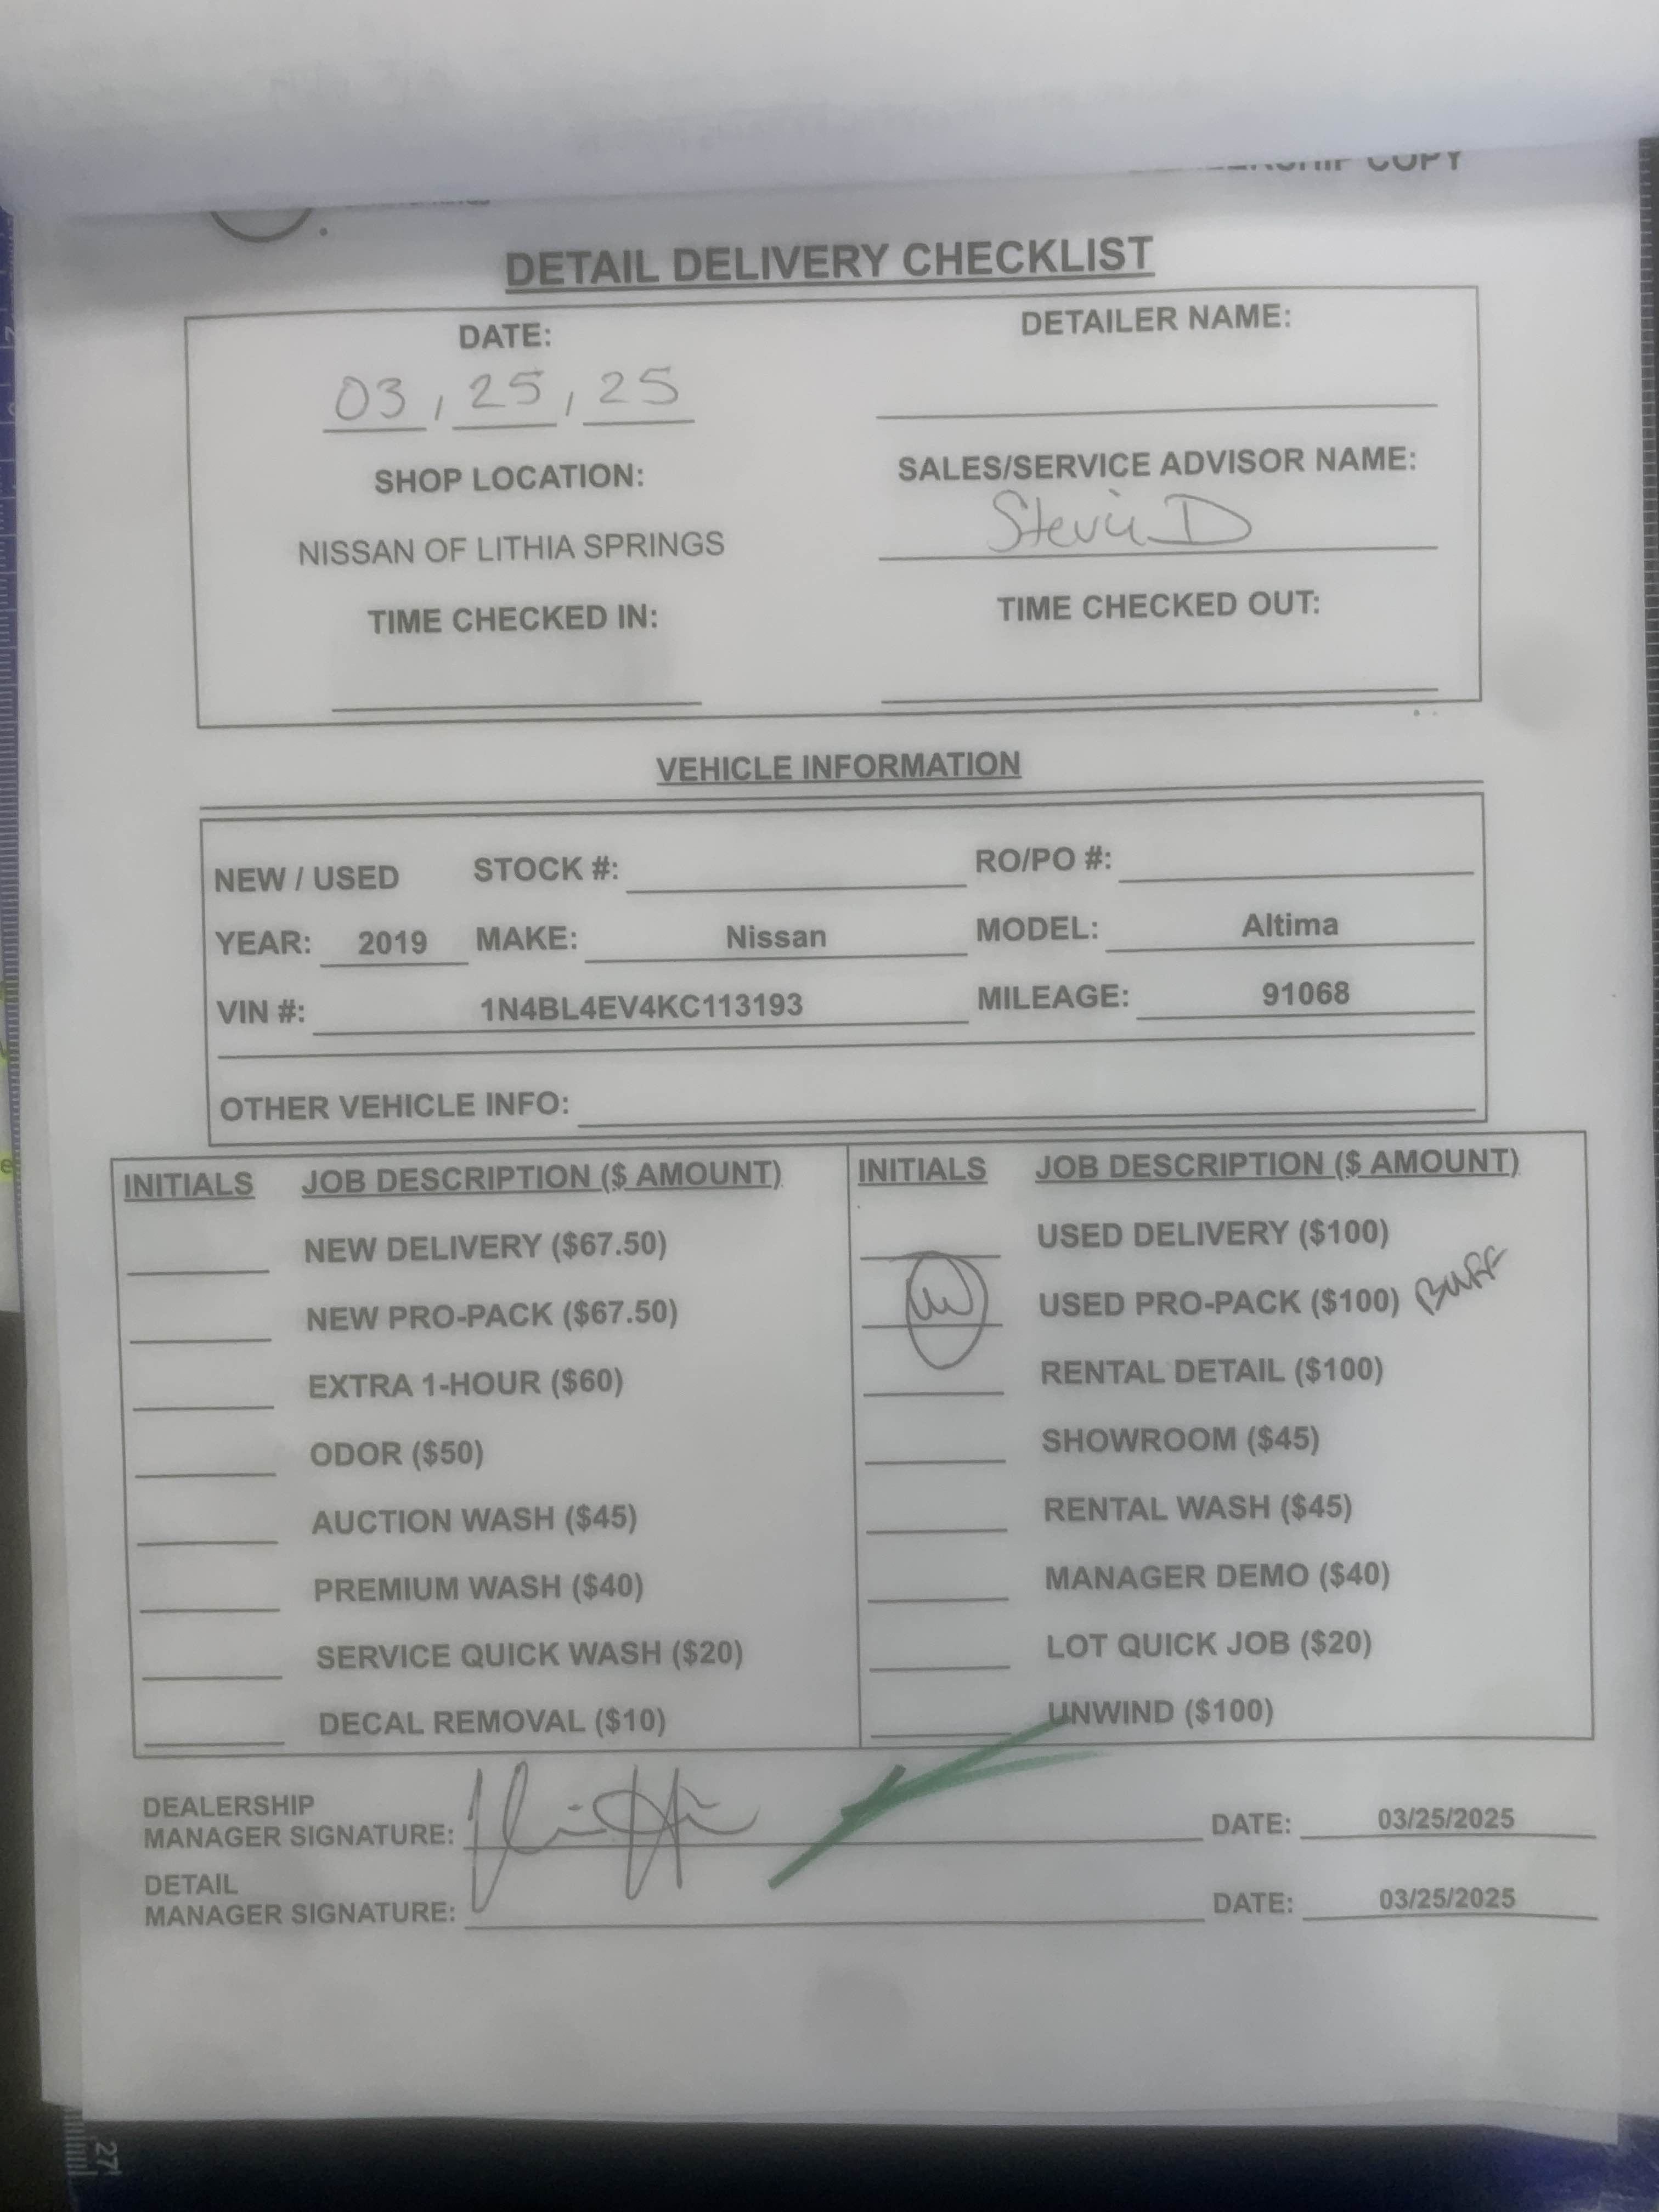 COPY
DETAIL DELIVERY CHECKLIST
DATE:
03 / 25 / 25
DETAILER NAME:
SHOP LOCATION:
NISSAN OF LITHIA SPRINGS
SALES/SERVICE ADVISOR NAME:
Stevie D
TIME CHECKED IN:
TIME CHECKED OUT:
VEHICLE INFORMATION
NEW / USED STOCK #: RO/PO #:
YEAR: 2019 MAKE: Nissan MODEL: Altima
VIN #: 1N4BL4EV4KC113193 MILEAGE: 91068
OTHER VEHICLE INFO:
INITIALS JOB DESCRIPTION ($ AMOUNT)
NEW DELIVERY ($67.50)
NEW PRO-PACK ($67.50)
EXTRA 1-HOUR ($60)
ODOR ($50)
AUCTION WASH ($45)
PREMIUM WASH ($40)
SERVICE QUICK WASH ($20)
DECAL REMOVAL ($10)
INITIALS JOB DESCRIPTION ($ AMOUNT)
USED DELIVERY ($100)
USED PRO-PACK ($100) BUFF
RENTAL DETAIL ($100)
SHOWROOM ($45)
RENTAL WASH ($45)
MANAGER DEMO ($40)
LOT QUICK JOB ($20)
UNWIND ($100)
DEALERSHIP
MANAGER SIGNATURE: DATE: 03/25/2025
DETAIL
MANAGER SIGNATURE: DATE: 03/25/2025
27